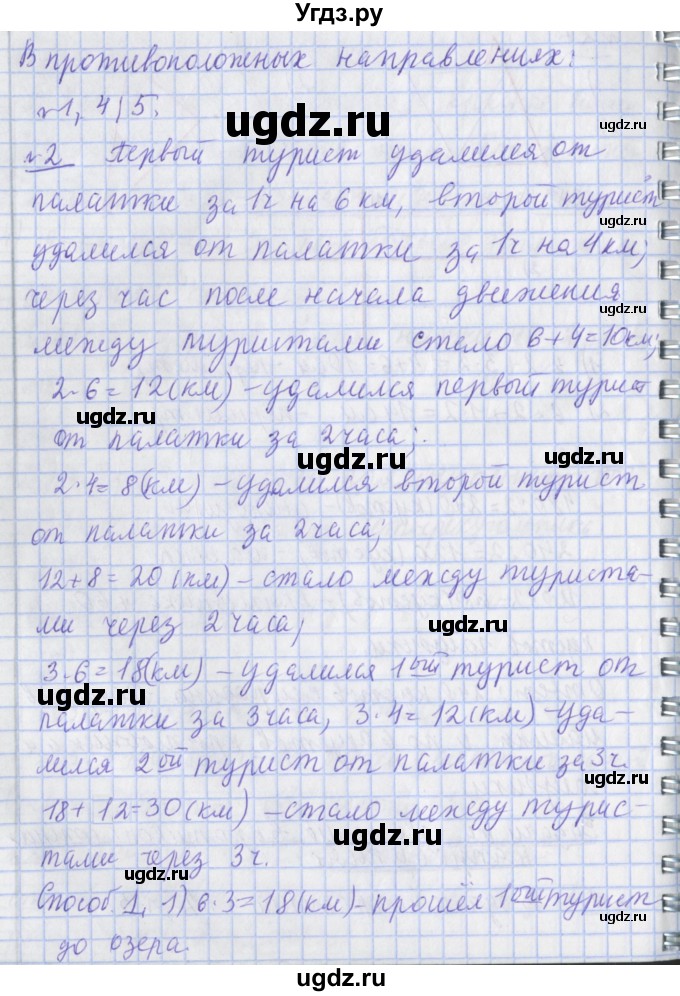 Угдз.ру
В противоположных направлениях:
№1, 4, 5.
№2 Первый турист удалился от
палатки за 1ч на 6 км, второй турист
удалился от палатки за 1ч на 4км;
через час после начала движения
между туристами стало 6+4=10км;
2·6=12(км) – удалился первый турист
от палатки за 2 часа;
2·4=8(км) – удалился второй турист
от палатки за 2 часа;
12+8=20(км) – стало между туриста-
ми через 2 часа;
3·6=18(км) – удалился 1ый турист от
палатки за 3 часа, 3·4=12(км) – уда-
лился 2ой турист от палатки за 3ч.
18+12=30(км) – стало между турис-
тами через 3ч.
Способ 1, 1) 6·3=18(км) – прошёл 1ый турист
до озера.
ugdz.ru
ugdz.ru
ugdz.ru
ugdz.ru
ugdz.ru
ugdz.ru
ugdz.ru
ugdz.ru
ugdz.ru
ugdz.ru
ugdz.ru
ugdz.ru
ugdz.ru
ugdz.ru